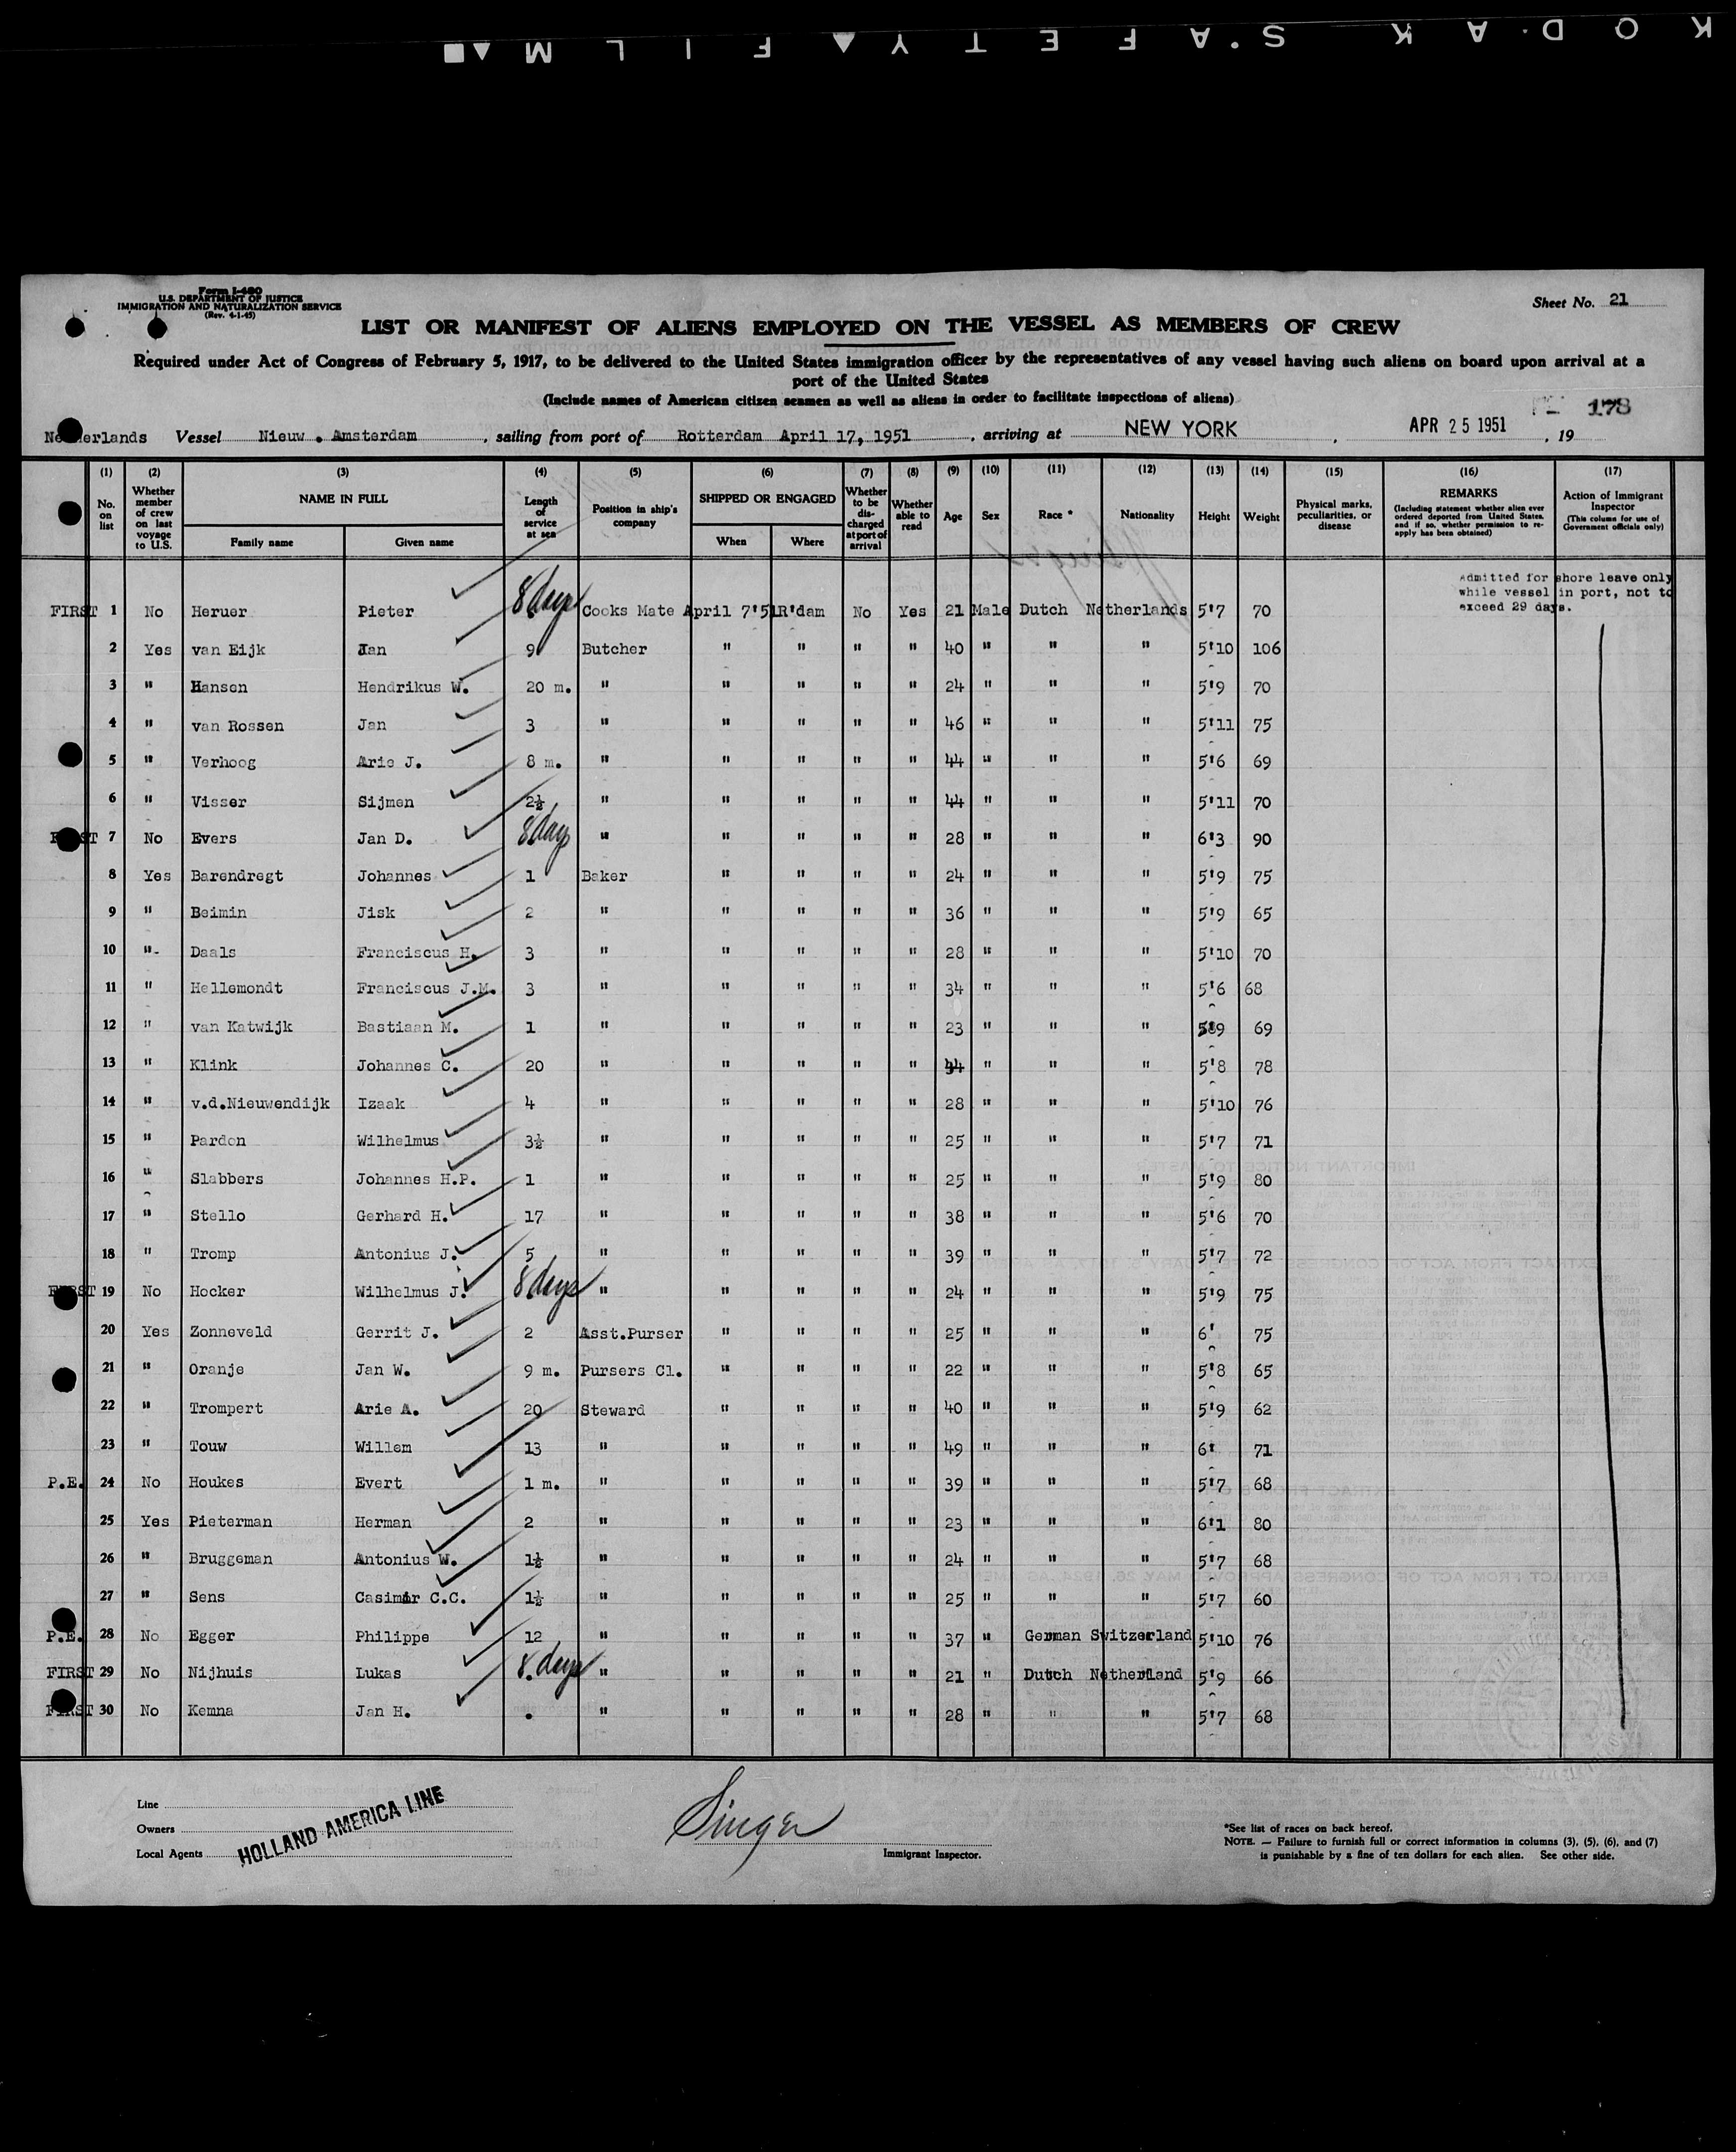 KODAK SAFETY FILM
Form I-480
U.S. DEPARTMENT OF JUSTICE
IMMIGRATION AND NATURALIZATION SERVICE
(Rev. 4-1-45)
Sheet No. 21
LIST OR MANIFEST OF ALIENS EMPLOYED ON THE VESSEL AS MEMBERS OF CREW
Required under Act of Congress of February 5, 1917, to be delivered to the United States immigration officer by the representatives of any vessel having such aliens on board upon arrival at a
port of the United States
(Include names of American citizen seamen as well as aliens in order to facilitate inspections of aliens)
178
Netherlands Vessel Nieuw Amsterdam, sailing from port of Rotterdam April 17, 1951, arriving at NEW YORK, APR 25 1951, 19
(1) (2) (3) (4) (5) (6) (7) (8) (9) (10) (11) (12) (13) (14) (15) (16) (17)
No. on list Whether member of crew on last voyage to U.S. NAME IN FULL Family name Given name Length of service at sea Position in ship's company SHIPPED OR ENGAGED When Where Whether to be discharged at port of arrival Whether able to read Age Sex Race * Nationality Height Weight Physical marks, peculiarities, or disease REMARKS (Including statement whether alien ever ordered deported from United States, and if so, whether permission to re-apply has been obtained) Action of Immigrant Inspector (This column for use of Government officials only)
Admitted for shore leave only
while vessel in port, not to
exceed 29 days.
FIRST 1 No Heruer Pieter 8 days Cooks Mate April 7'51 R'dam No Yes 21 Male Dutch Netherlands 5'7 70
2 Yes van Eijk Jan 9 Butcher " " " " 40 " " " 5'10 106
3 " Hansen Hendrikus W. 20 m. " " " " " 24 " " " 5'9 70
4 " van Rossen Jan 3 " " " " " 46 " " " 5'11 75
5 " Verhoog Arie J. 8 m. " " " " " 44 " " " 5'6 69
6 " Visser Sijmen 2½ " " " " " 44 " " " 5'11 70
FIRST 7 No Evers Jan D. 8 day " " " " " 28 " " " 6'3 90
8 Yes Barendregt Johannes 1 Baker " " " " 24 " " " 5'9 75
9 " Beimin Jisk 2 " " " " " 36 " " " 5'9 65
10 " Daals Franciscus H. 3 " " " " " 28 " " " 5'10 70
11 " Hellemondt Franciscus J.M. 3 " " " " " 34 " " " 5'6 68
12 " van Katwijk Bastiaan M. 1 " " " " " 23 " " " 5'9 69
13 " Klink Johannes C. 20 " " " " " 44 " " " 5'8 78
14 " v.d.Nieuwendijk Izaak 4 " " " " " 28 " " " 5'10 76
15 " Pardon Wilhelmus 3½ " " " " " 25 " " " 5'7 71
16 " Slabbers Johannes H.P. 1 " " " " " 25 " " " 5'9 80
17 " Stello Gerhard H. 17 " " " " " 38 " " " 5'6 70
18 " Tromp Antonius J. 5 " " " " " 39 " " " 5'7 72
FIRST 19 No Hocker Wilhelmus J. 8 days " " " " " 24 " " " 5'9 75
20 Yes Zonneveld Gerrit J. 2 Asst.Purser " " " " 25 " " " 6' 75
21 " Oranje Jan W. 9 m. Pursers Cl. " " " " 22 " " " 5'8 65
22 " Trompert Arie A. 20 Steward " " " " 40 " " " 5'9 62
23 " Touw Willem 13 " " " " " 49 " " " 6' 71
P.E. 24 No Houkes Evert 1 m. " " " " " 39 " " " 5'7 68
25 Yes Pieterman Herman 2 " " " " " 23 " " " 6'1 80
26 " Bruggeman Antonius W. 1½ " " " " " 24 " " " 5'7 68
27 " Sens Casimir C.C. 1½ " " " " " 25 " " " 5'7 60
P.E. 28 No Egger Philippe 12 " " " " " 37 " German Switzerland 5'10 76
FIRST 29 No Nijhuis Lukas 8 days " " " " " 21 " Dutch Netherland 5'9 66
FIRST 30 No Kemna Jan H. " " " " " 28 " " " 5'7 68
Line
Owners
Local Agents
HOLLAND AMERICA LINE
Singer
Immigrant Inspector.
*See list of races on back hereof.
NOTE. — Failure to furnish full or correct information in columns (3), (5), (6), and (7)
is punishable by a fine of ten dollars for each alien. See other side.